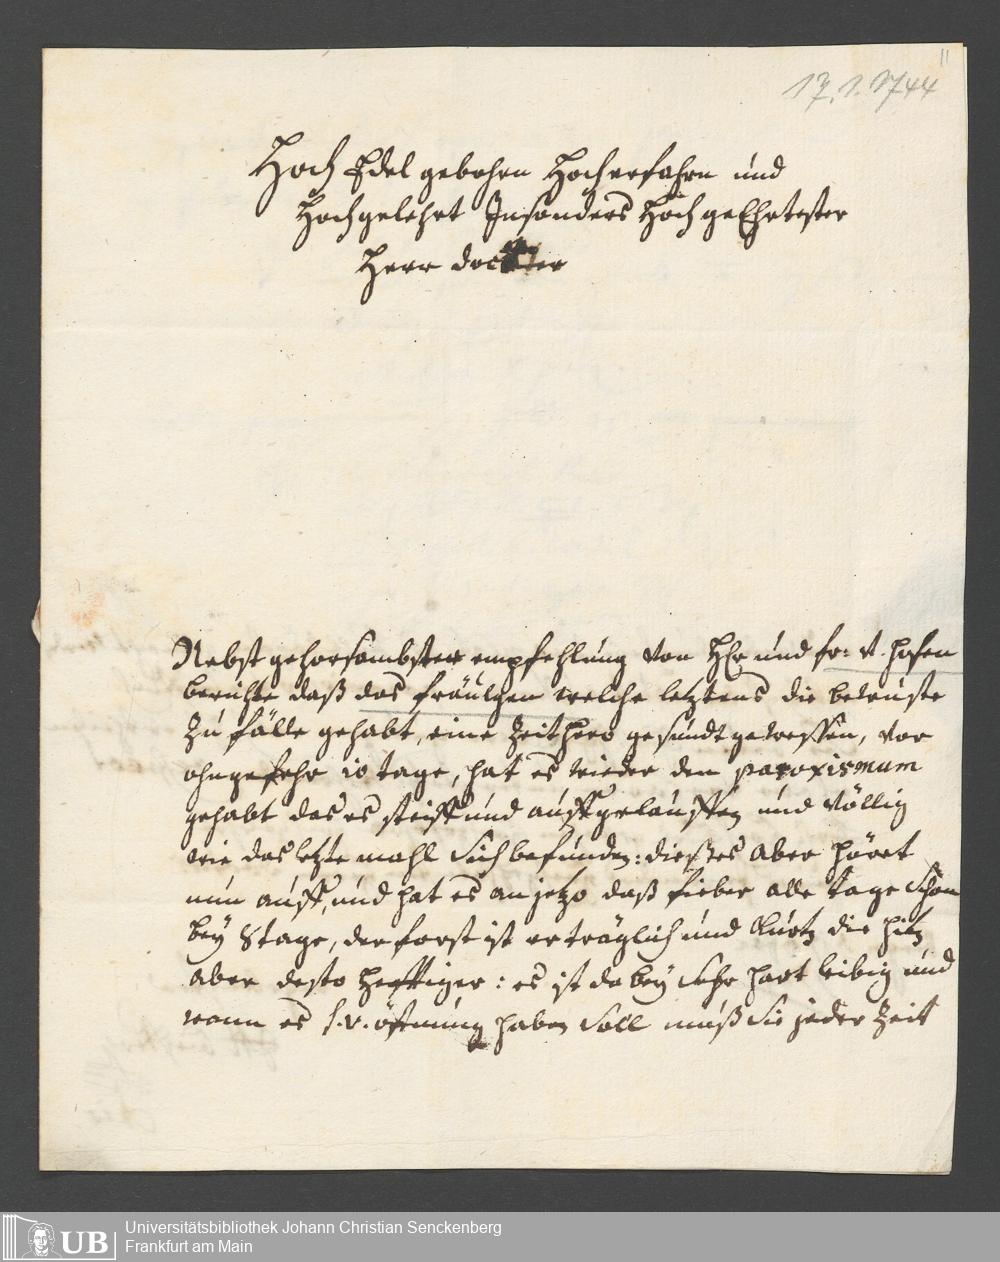 11
17. 1. 1744
Hoch Edel gebohrn Hocherfahrn und
Hochgelehrt Insonders Hoch geEhrtester
Herr docktter
Nebst gehorsambster empfehlung von Hr und fr: v. hosen
berichte daß das fräulgen welche letztens die bewuste
Zu fälle gehabt, eine Zeithero gesundt gewessen, vor
ohngefehr 10 tage, hat es wieder den paroxismum
gehabt das es steiff und auffgelauffen und völlig
wie das letzte mahl sich befunden: dießes aber höret
nun auff, und hat es an jetzo daß fieber alle tage schon
bey 8 tage, der forst ist erträglich und kurtz die hitz
aber desto hefftiger: es ist dabey sehr hart leibig und
wann es s. v. öffnung haben soll muß sie jeder Zeit
UB
Universitätsbibliothek Johann Christian Senckenberg
Frankfurt am Main